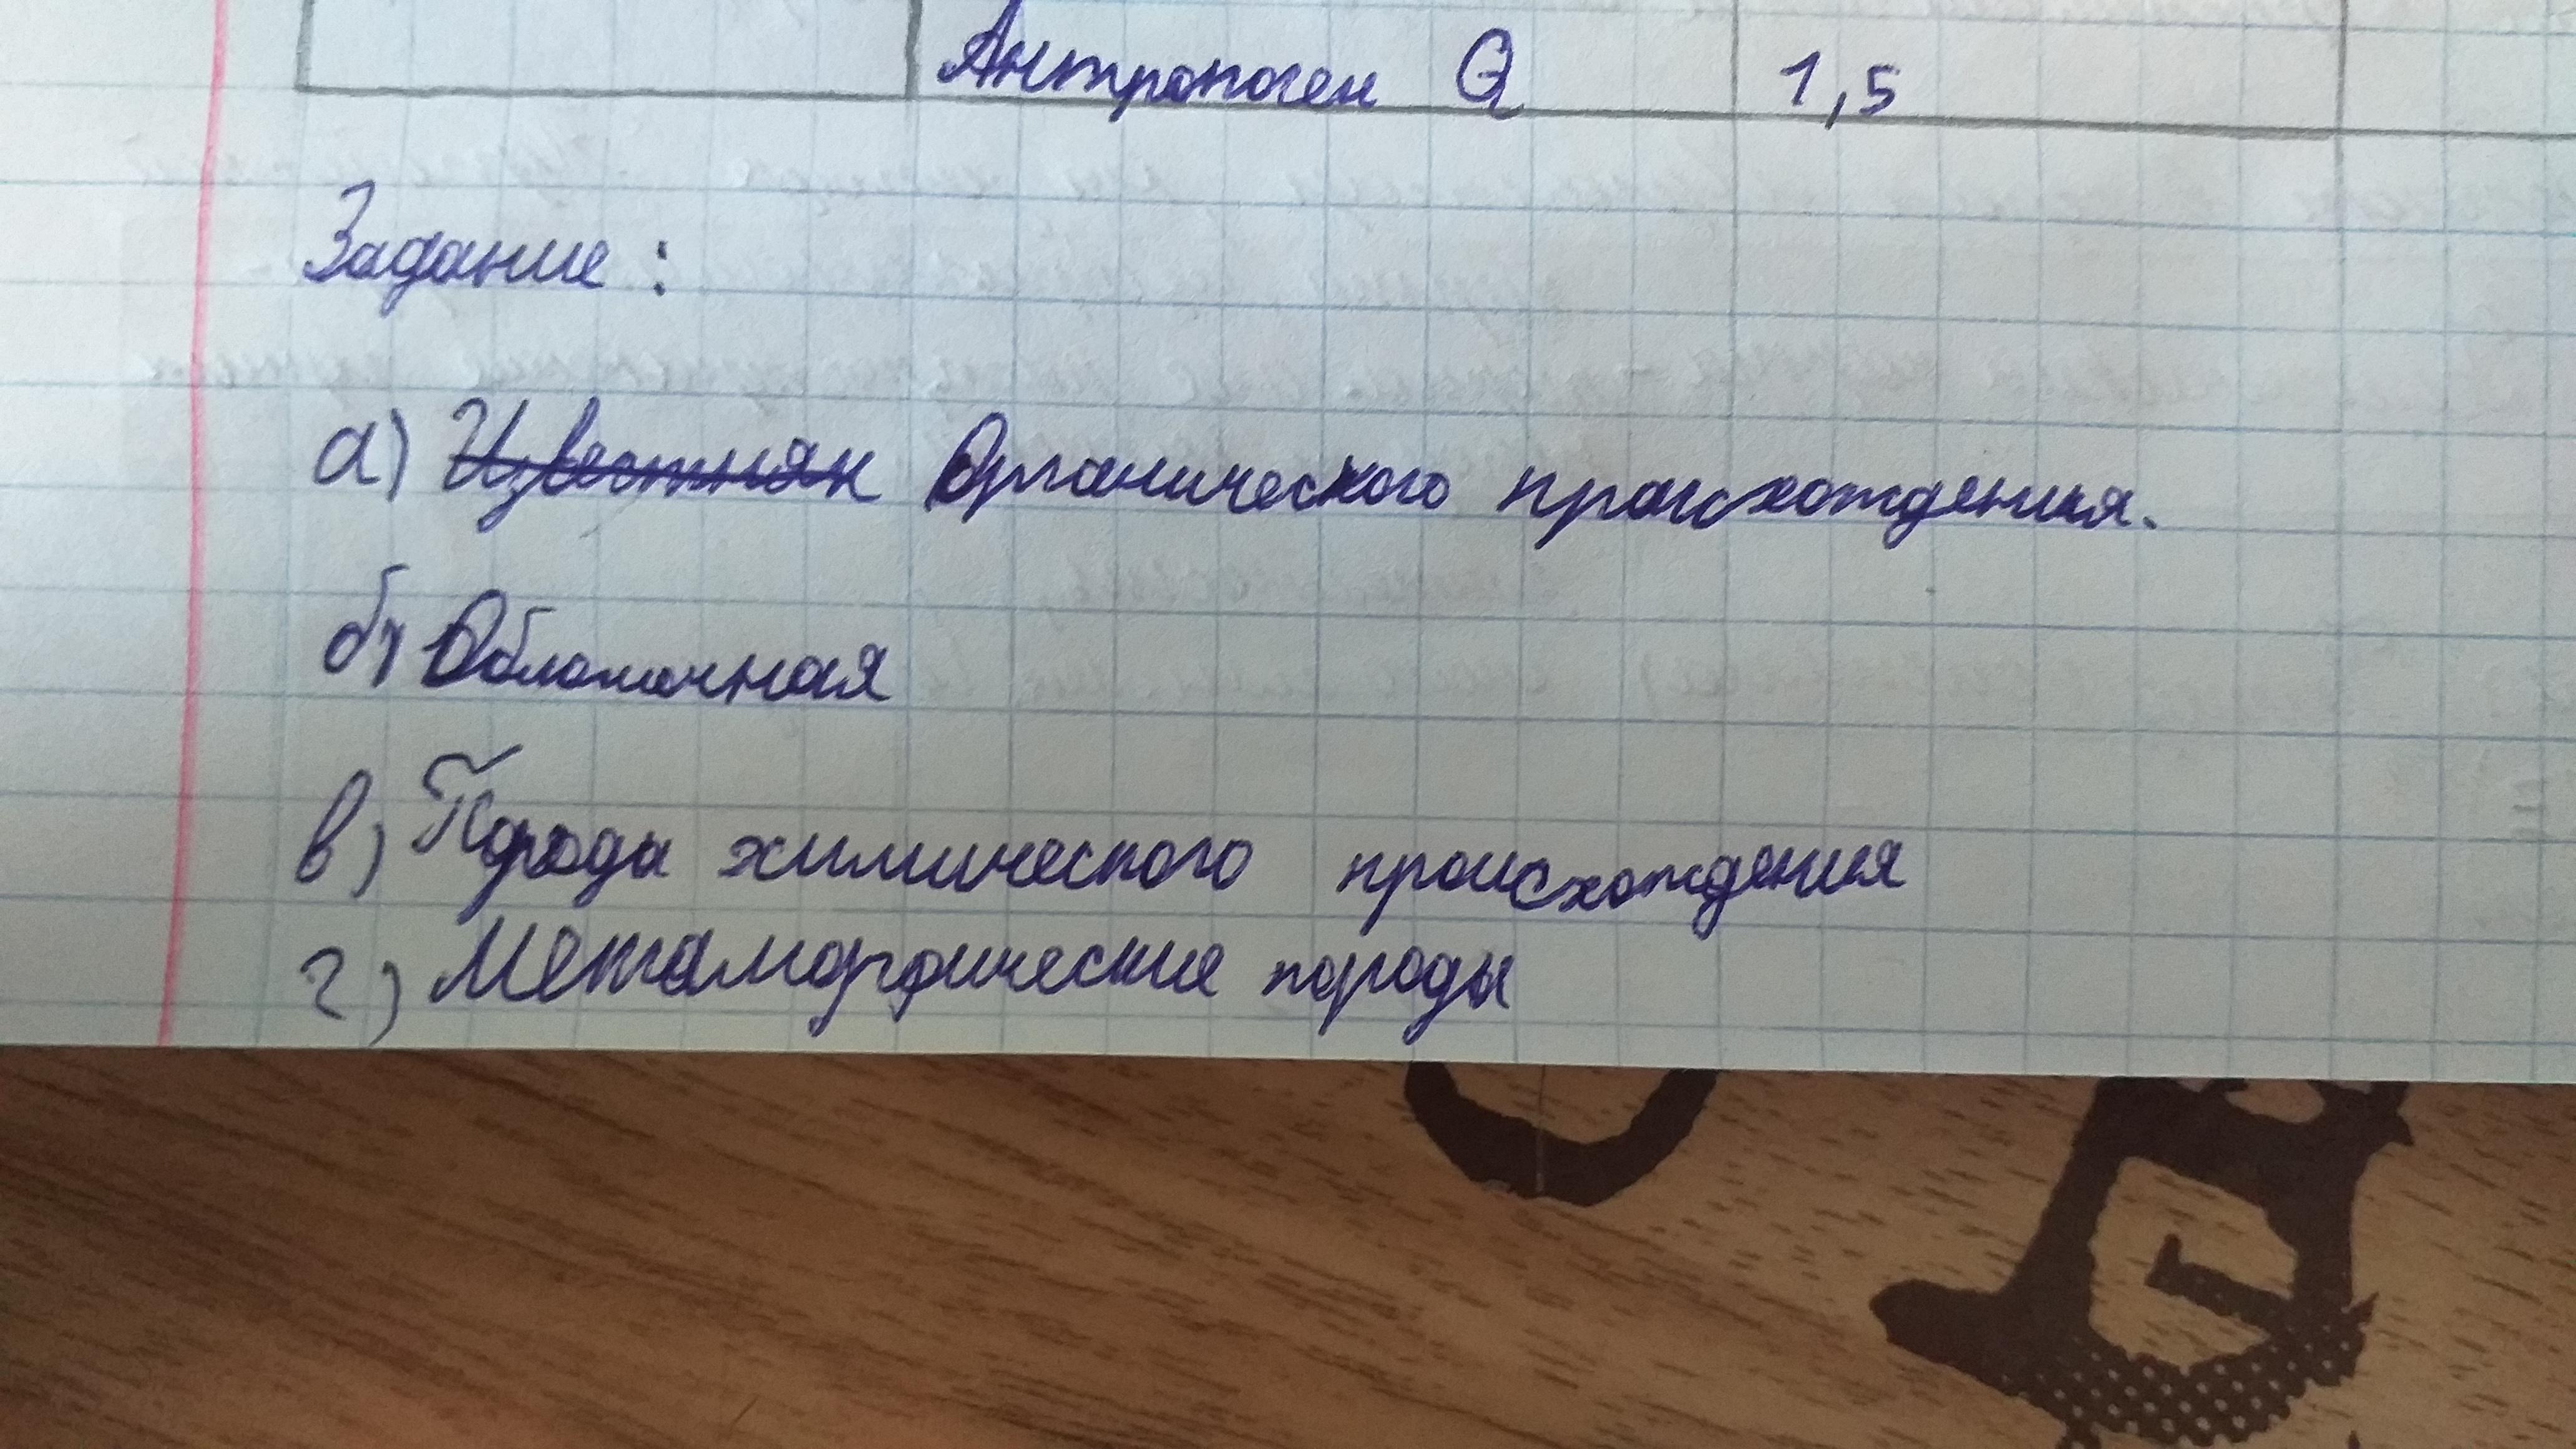 Антропоген Q 1,5
Задание:
а) Известняк Органического происхождения.
б) Обломочная
в) Порода химического происхождения
г) Метаморфические породы